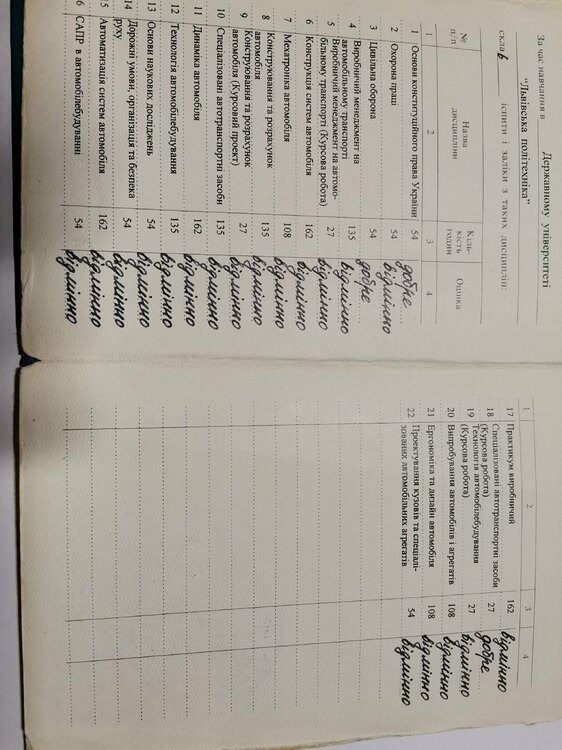 За час навчання в Державному університеті
"Львівська політехніка"
склав іспити і заліки з таких дисциплін:
№ п/п Назва дисципліни Кіль-кість годин Оцінка
1 2 3 4
1 Основи конституційного права України 54 добре
2 Охорона праці 54 відмінно
3 Цивільна оборона 54 добре
4 Виробничий менеджмент на
автомобільному транспорті 135 відмінно
5 Виробничий менеджмент на автомо-
більному транспорті (Курсова робота) 27 відмінно
6 Конструкція систем автомобіля 162 відмінно
7 Мехатроніка автомобіля 108 відмінно
8 Конструювання та розрахунок
автомобіля 135 відмінно
9 Конструювання та розрахунок
автомобіля (Курсовий проект) 27 відмінно
10 Спеціалізовані автотранспортні засоби 135 відмінно
11 Динаміка автомобіля 162 відмінно
12 Технологія автомобілебудування 135 відмінно
13 Основи наукових досліджень 54 відмінно
14 Дорожні умови, організація та безпека
руху 54 відмінно
15 Автоматизація систем автомобіля 162 відмінно
6 САПР в автомобілебудуванні 54 відмінно
1 2 3 4
17 Практикум виробничий 162 відмінно
18 Спеціалізовані автотранспортні засоби
(Курсова робота) 27 добре
19 Технологія автомобілебудування
(Курсова робота) 27 відмінно
20 Випробування автомобілів і агрегатів 108 відмінно
21 Ергономіка та дизайн автомобіля 108 відмінно
22 Проектування кузовів та спеціалі-
зованих автомобільних агрегатів 54 відмінно